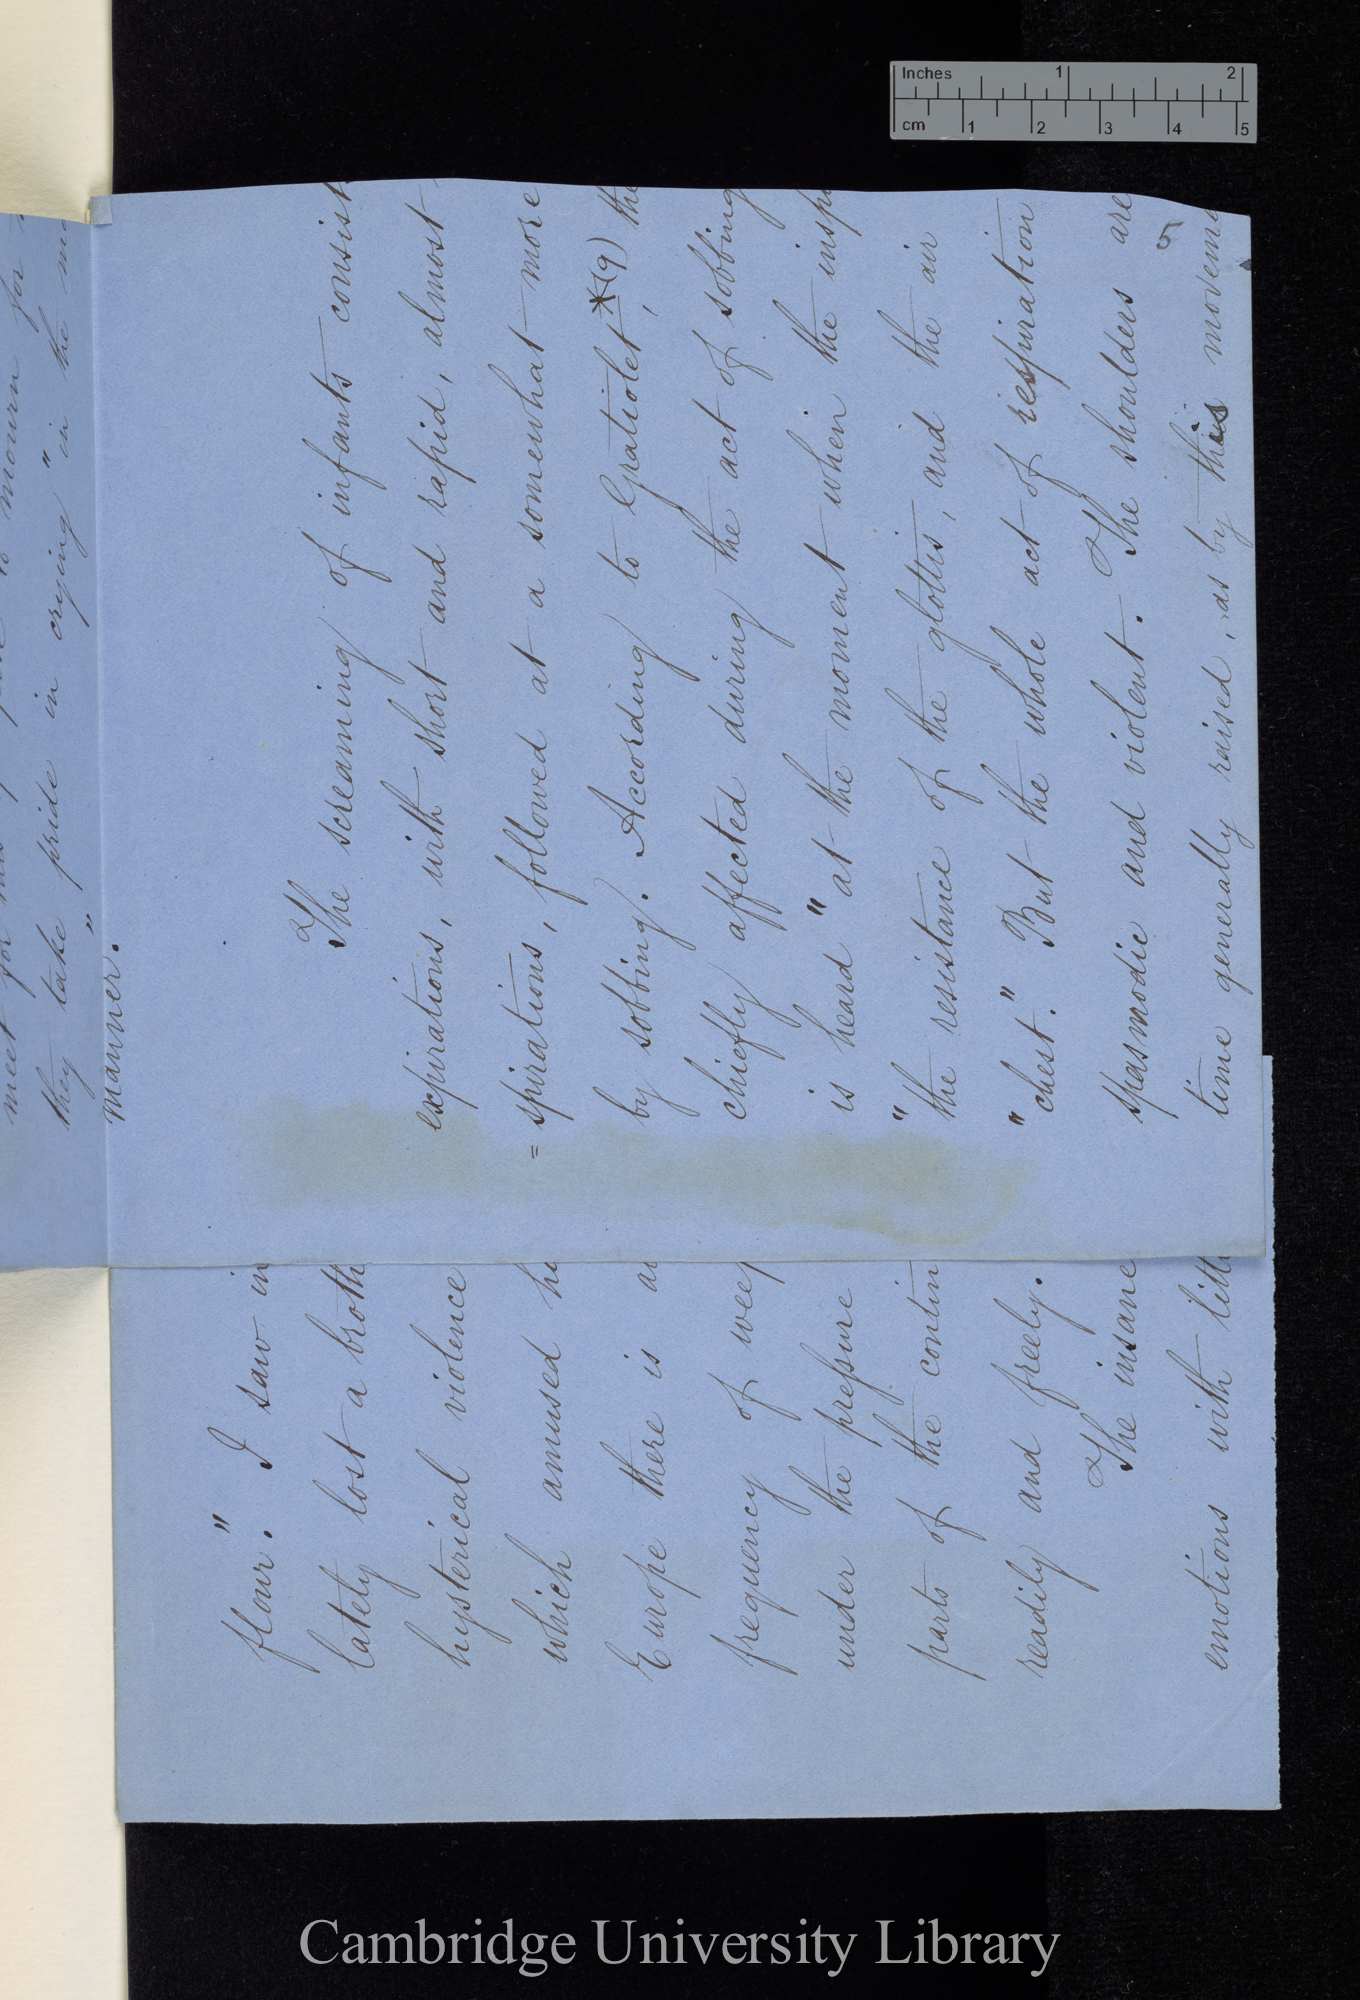 they take pride in crying "in the
manner."
The screaming of infants consist
expirations, with short and rapid, almost
= spirations, followed at a somewhat more
by sobbing. According to Gratiolet, *(9) the
chiefly affected during the act of sobbing
is heard "at the moment when the insp
"the resistance of the glottis, and the air
"chest." But the whole act of respiration
spasmodic and violent. The shoulders are
time generally raised, as by this movem
5
flour." I saw in
lately lost a broth
hysterical violence
which amused hi
Europe there is
frequency of weep
under the pressure
parts of the contin
readily and freely.
The insane
emotions with littl
Inches 1 2
cm 1 2 3 4 5
Cambridge University Library